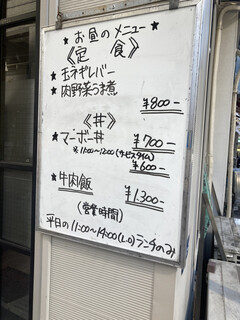 ★お昼のメニュー
《定食》
★玉ネギレバー
★肉野菜うま煮
¥800-
《丼》
★マーボー丼 ¥700-
※11:00〜12:00(サービスタイム)
¥600-
★牛肉飯 ¥1,300-
(営業時間)
平日の11:00〜14:00(L.O)ランチのみ